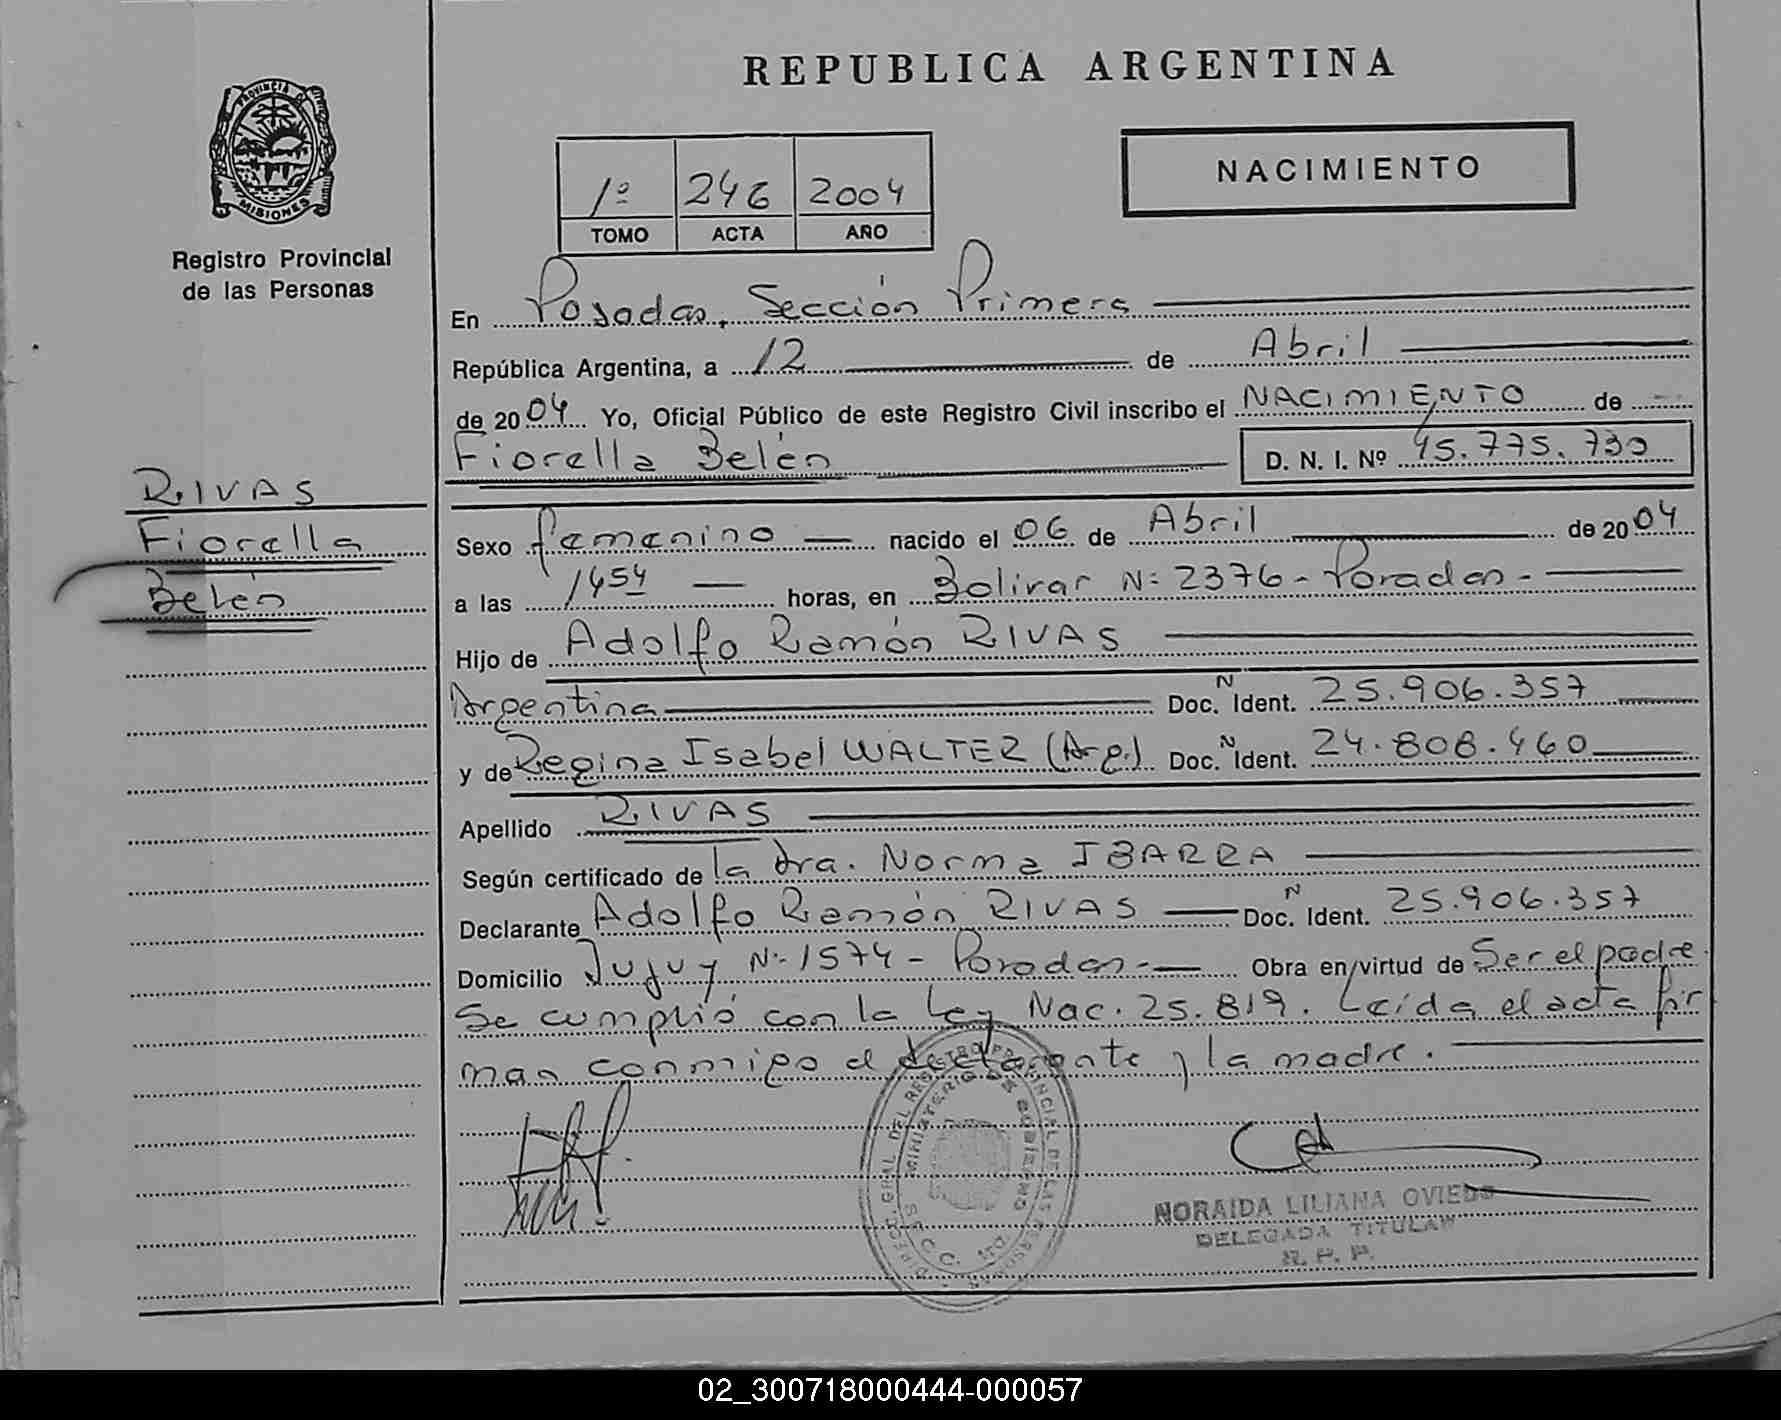 REPUBLICA ARGENTINA
PROVINCIA DE MISIONES
Registro Provincial
de las Personas
NACIMIENTO
1º 246 2004
TOMO ACTA AÑO
En Posadas, Sección Primera
República Argentina, a 12 de Abril
de 2004 Yo, Oficial Público de este Registro Civil inscribo el NACIMIENTO de
Fiorella Belén D. N. I. Nº 45.775.730
RIVAS
Fiorella
Belén
Sexo femenino nacido el 06 de Abril de 2004
a las 1454 horas, en Bolivar Nº 2376 - Posadas -
Hijo de Adolfo Ramón RIVAS
Argentina Doc. N Ident. 25.906.357
y de Regina Isabel WALTER (Arg.) Doc. N Ident. 24.808.460
Apellido RIVAS
Según certificado de la dra. Norma IBARRA
Declarante Adolfo Ramón RIVAS Doc. N Ident. 25.906.357
Domicilio Jujuy Nº 1574 - Posadas - Obra en virtud de Ser el padre.
Se cumplió con la Ley Nac. 25.819. Leída el acta fir
man conmigo el declarante y la madre.
DIREC. GRAL. DEL REGISTRO PROVINCIAL DE LAS PERSONAS
MINISTERIO DE GOBIERNO
SECC. 1ra.
NORAIDA LILIANA OVIEDO
DELEGADA TITULAR
R. P. P.
02_300718000444-000057